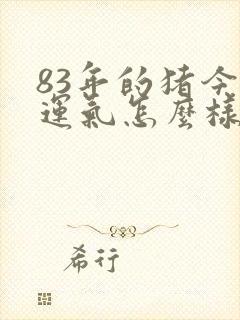 83年的猪今
運氣怎麼樣
希行